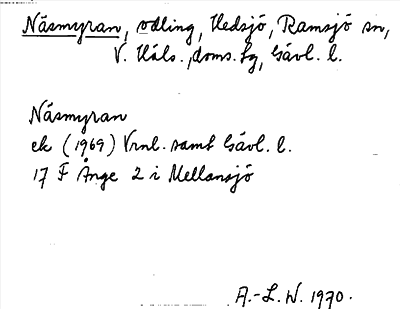 Näsmyran, odling, Hedsjö, Ramsjö sn,
V. Häls. doms. tg, Gävl. l.
Näsmyran
ek (1969) Vrnl. samt Gävl. l.
17 F Ånge 2 i Mellansjö
A.-L. W. 1970.